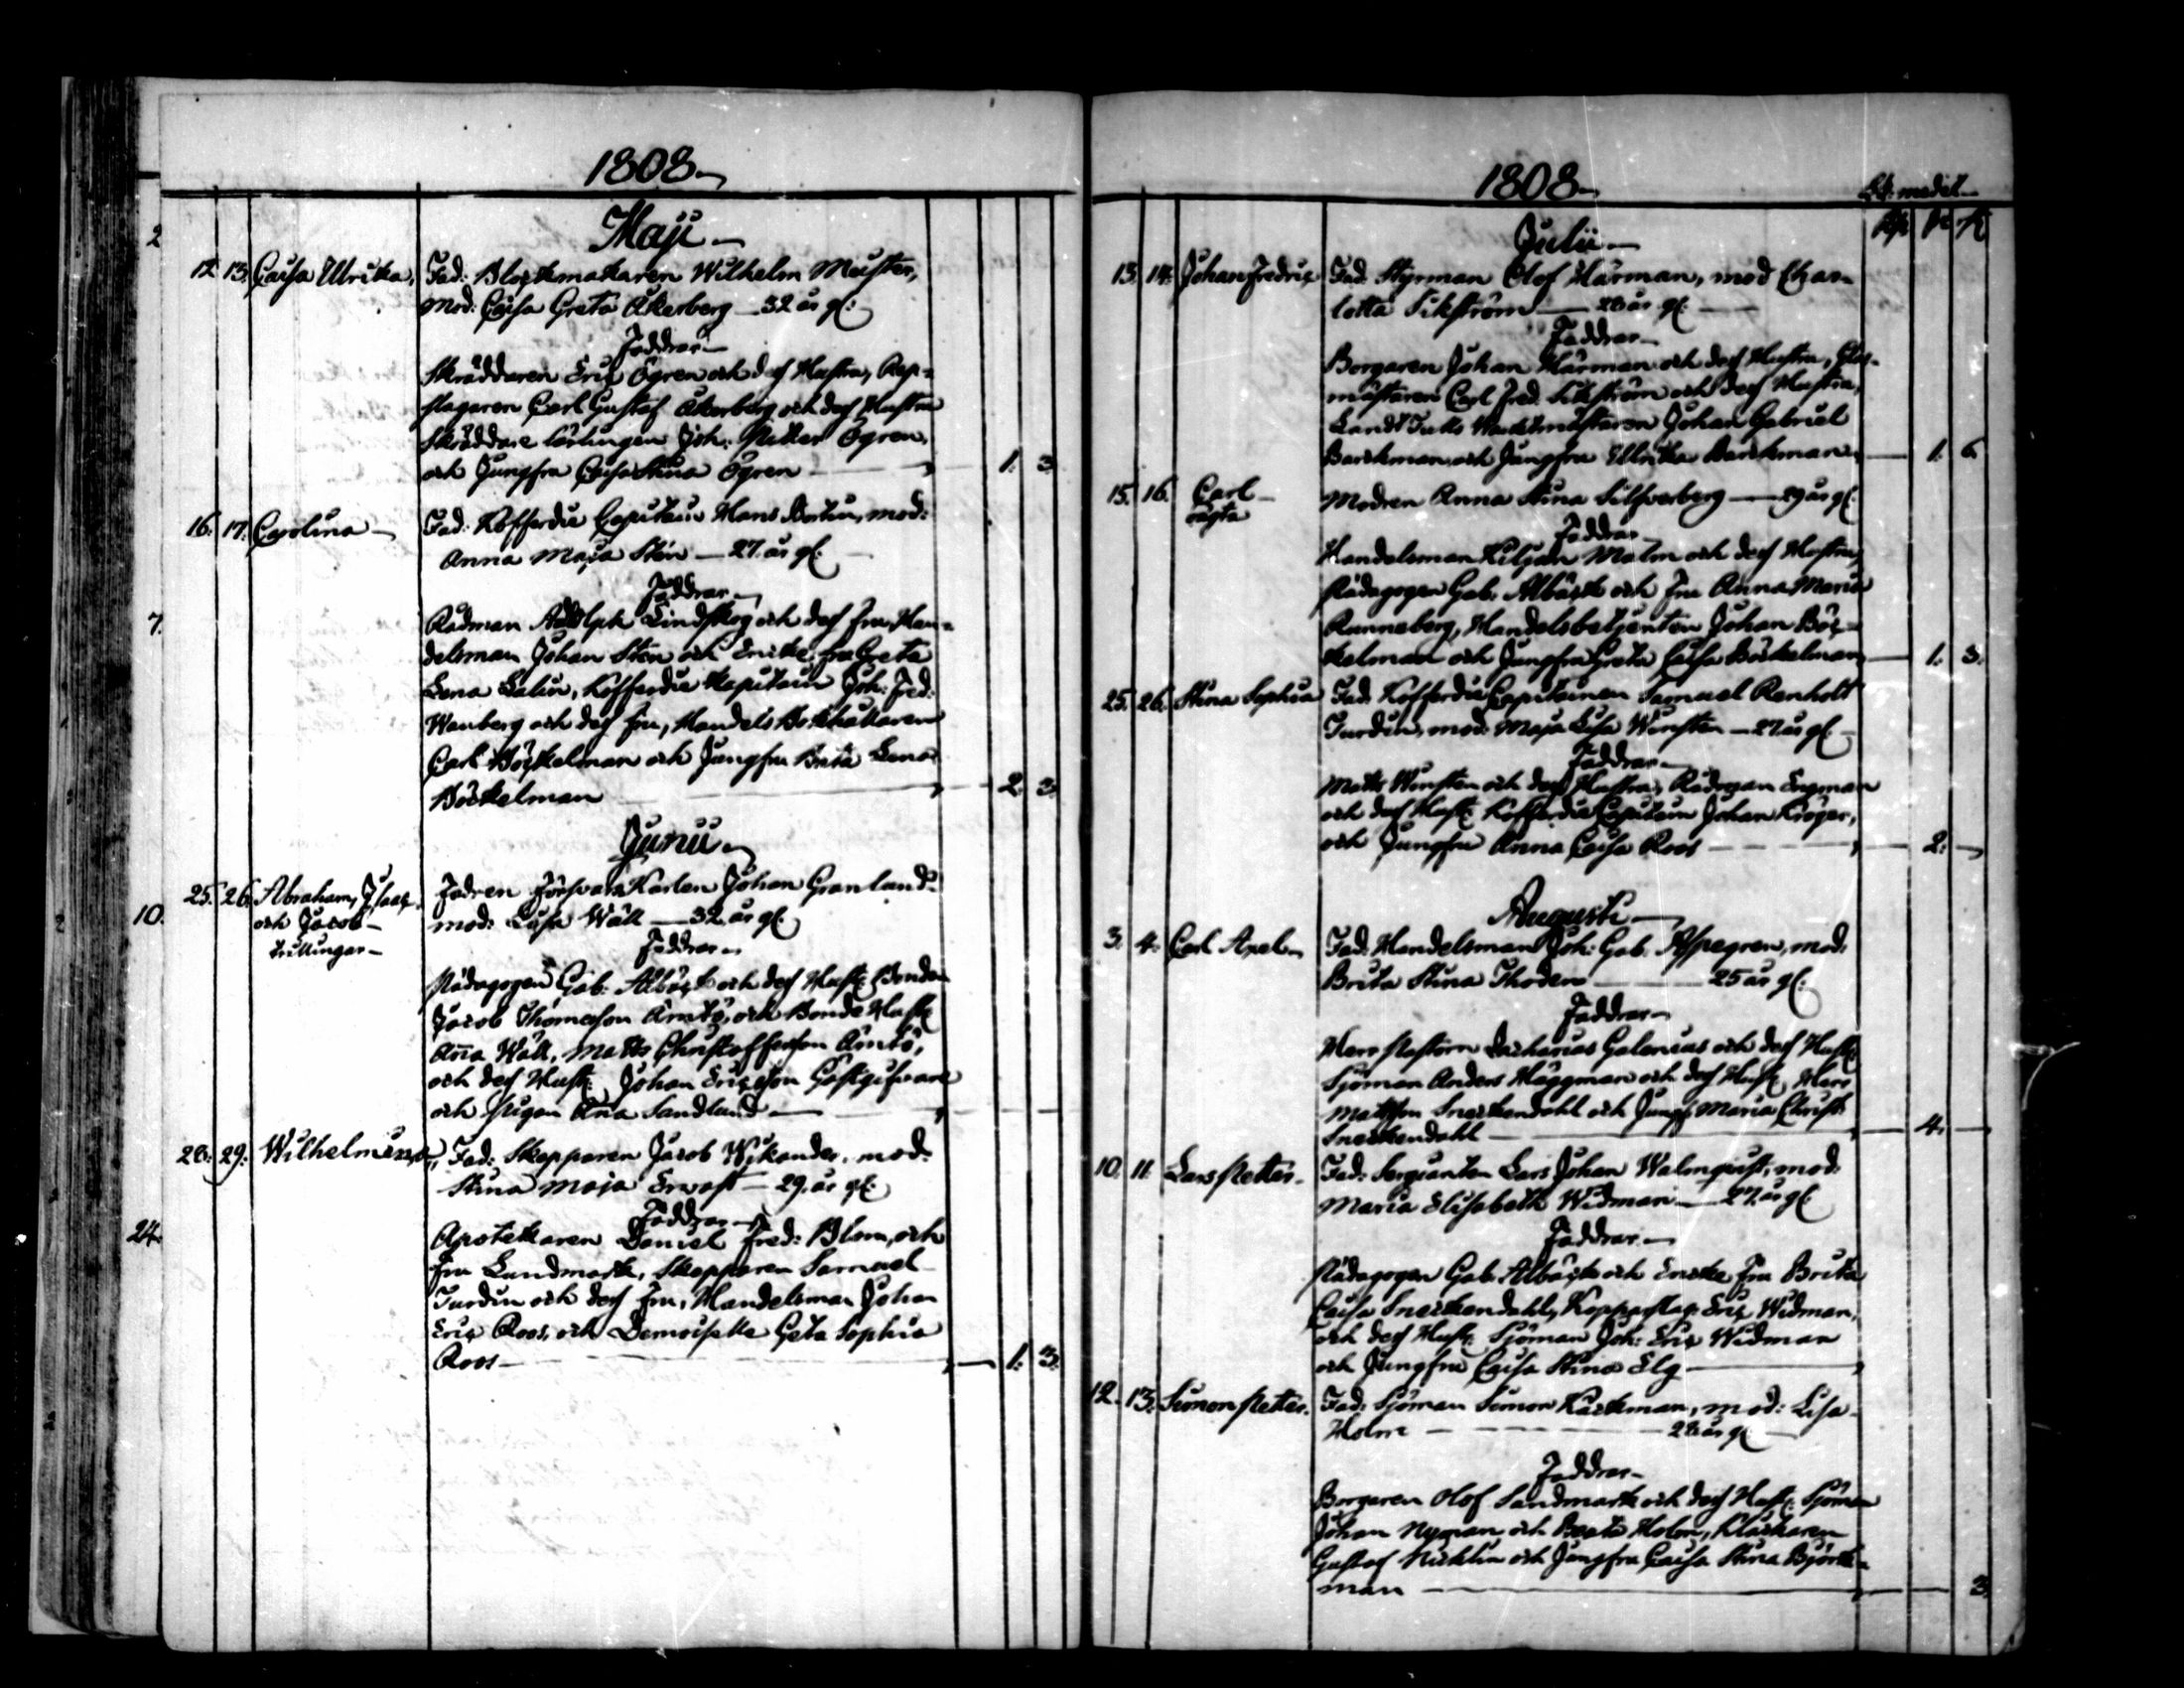 1808
Maji
12. 13. Caisa Ullrika, Fad: Blockmakaren Wilhelm Meister,
Mod: Caisa Greta Åkerberg 32 år gl:
Faddrar
Skräddaren Eric Ögren och dess Hustru, Rep-
slagaren Carl Gustaf Åkerberg och dess Hustru
Skräddare lärlingen Joh: Petter Ögren,
och Jungfru Caisa Stina Ögren 1. 3
16. 17. Carolina Fad: Kofferdie Capitain Hans Bohm, mod:
Anna Maja Stén 27 år gl:
Faddrar
7. Rådman Adolph Lindskog och dess Fru, Han-
delsman Johan Sten och Encke fru Greta
Lena Lalin, Kofferdie Kapitain Joh: Fred:
Wänberg och dess Fru, Handels Bokhållaren
Carl Böckelman och Jungfru Brita Lena
Böckelman 2. 3
Junii
25. 26. Abraham, Isaac, Fadren Försvars Karlen Johan Granlund
10. och Jacob mod: Lisa Wäll 32 år gl:
trillingar Faddrar
Pädagogen Gab: Albäck och dess Hust: Bonden
Jacob Thomasson Ämtö, och Bonde Hust:
Anna Wäll, Matts Christoffersson Ämtö,
och dess Hust: Johan Ericsson Gästgifvare
och Pigan Anna Sandlund
28. 29. Wilhelmina, Fad: Skepparen Jacob Wikander, mod:
Stina Maja Erwast 29. år gl:
Faddrar
24. Apotekaren Daniel Fred: Blom, och
Fru Lundmark, Skepparen Samuel
Turdin och dess Fru, Handelsman Johan
Eric Roos, och Demoiselle Greta Sophia
Roos 1. 3.
1808
medel
Julii
13. 14. Johan Fredric Fad: Styrman Olof Härman, mod Char-
lotta Sikström 28 år gl:
Faddrar
Borgaren Johan Härman och dess Hustru, Glas-
mästaren Carl Fred: Sikström och dess Hustru,
Landt Tulls Wacktmästaren Johan Gabriel
Barckman, och Jungfru Ullrika Barckman 1. 6.
15. 16. Carl Modren Anna Stina Silfverberg 29 år gl:
oägta Faddrar
Handelsman Kiljan Malm och dess Hustru,
Pädagogen Gab: Albäck och Fru Anna Maria
Runneberg, Handelsbetjenten Johan Böc-
kelman och Jungfru Greta Caisa Böckelman 1. 3.
25. 26. Stina Sophia Fad: Kofferdie Capitainen Samuel Renholt
Turdin, mod: Maja Lisa Winsten 27. år gl:
Faddrar
Matts Winsten och dess Hustru, Rådman Engman
och dess Hust: Kofferdie Capitain Johan Kröger,
och Jungfru Anna Caisa Roos 2.
Augusti
3. 4. Carl Axel Fad: Handelsman Joh: Gab: Aspegren, mod:
Brita Stina Thoden 25 år gl:
Faddrar
Herr Pastorn Zacharias Galenius och dess Hust:
Sjöman Anders Häggman och dess Hust: Herr
Matthson Sneckendahl och Jungf: Maria Christ:
Sneckendahl 4.
10. 11. Lars Petter Fad: Sergianten Lars Johan Walmquist, mod:
Maria Elisabeth Widman 27. år gl:
Faddrar
Pädagogen Gab: Albäck och Encke Fru Brita
Caisa Sneckendahl, Kopparslag: Eric Widman,
och dess Hust: Sjöman Joh: Eric Widman
och Jungfru Caisa Stina Elg
12. 13. Simon Petter Fad: Sjöman Simon Käckman, mod: Lisa
Holm 28 år gl:
Faddrar
Borgaren Olof Sandmark och dess Hust: Sjöman
Johan Nyman och Beata Holm, Klockaren
Gustaf Nicklin och Jungfru Caisa Stina Björk-
man 3